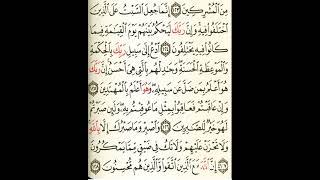 مِنَ ٱلْمُشْرِكِينَ ١٢٣ إِنَّمَا جُعِلَ ٱلسَّبْتُ عَلَى ٱلَّذِينَ
ٱخْتَلَفُوا۟ فِيهِ وَإِنَّ رَبَّكَ لَيَحْكُمُ بَيْنَهُمْ يَوْمَ ٱلْقِيَٰمَةِ فِيمَا
كَانُوا۟ فِيهِ يَخْتَلِفُونَ ١٢٤ ٱدْعُ إِلَىٰ سَبِيلِ رَبِّكَ بِٱلْحِكْمَةِ
وَٱلْمَوْعِظَةِ ٱلْحَسَنَةِ وَجَٰدِلْهُم بِٱلَّتِى هِىَ أَحْسَنُ إِنَّ رَبَّكَ
هُوَ أَعْلَمُ بِمَن ضَلَّ عَن سَبِيلِهِۦ وَهُوَ أَعْلَمُ بِٱلْمُهْتَدِينَ ١٢٥
وَإِنْ عَاقَبْتُمْ فَعَاقِبُوا۟ بِمِثْلِ مَا عُوقِبْتُم بِهِۦ وَلَئِن صَبَرْتُمْ
لَهُوَ خَيْرٌ لِّلصَّٰبِرِينَ ١٢٦ وَٱصْبِرْ وَمَا صَبْرُكَ إِلَّا بِٱللَّهِ
وَلَا تَحْزَنْ عَلَيْهِمْ وَلَا تَكُ فِى ضَيْقٍ مِّمَّا يَمْكُرُونَ
١٢٧ إِنَّ ٱللَّهَ مَعَ ٱلَّذِينَ ٱتَّقَوا۟ وَّٱلَّذِينَ هُم مُّحْسِنُونَ ١٢٨